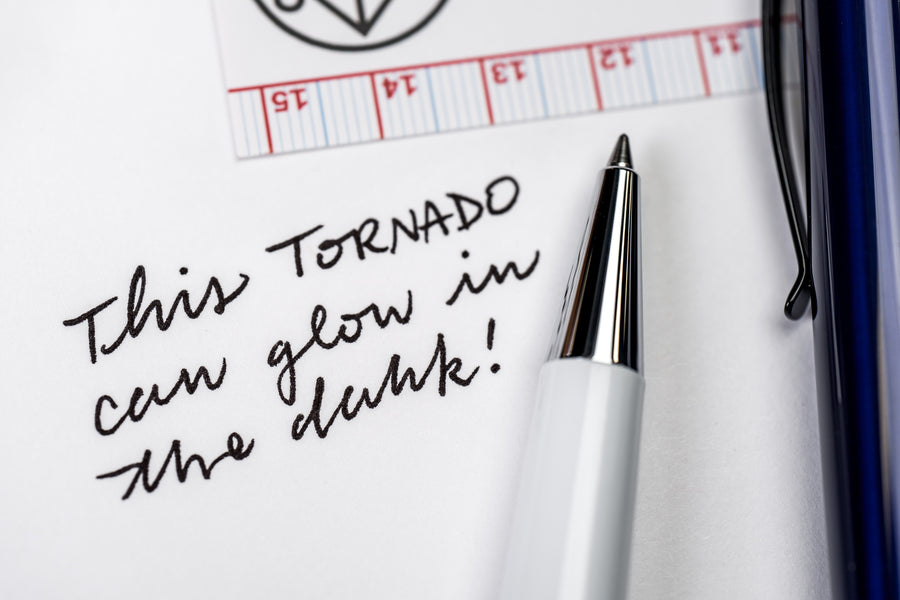 15 14 13 12 11
This TORNADO
can glow in
the dark!